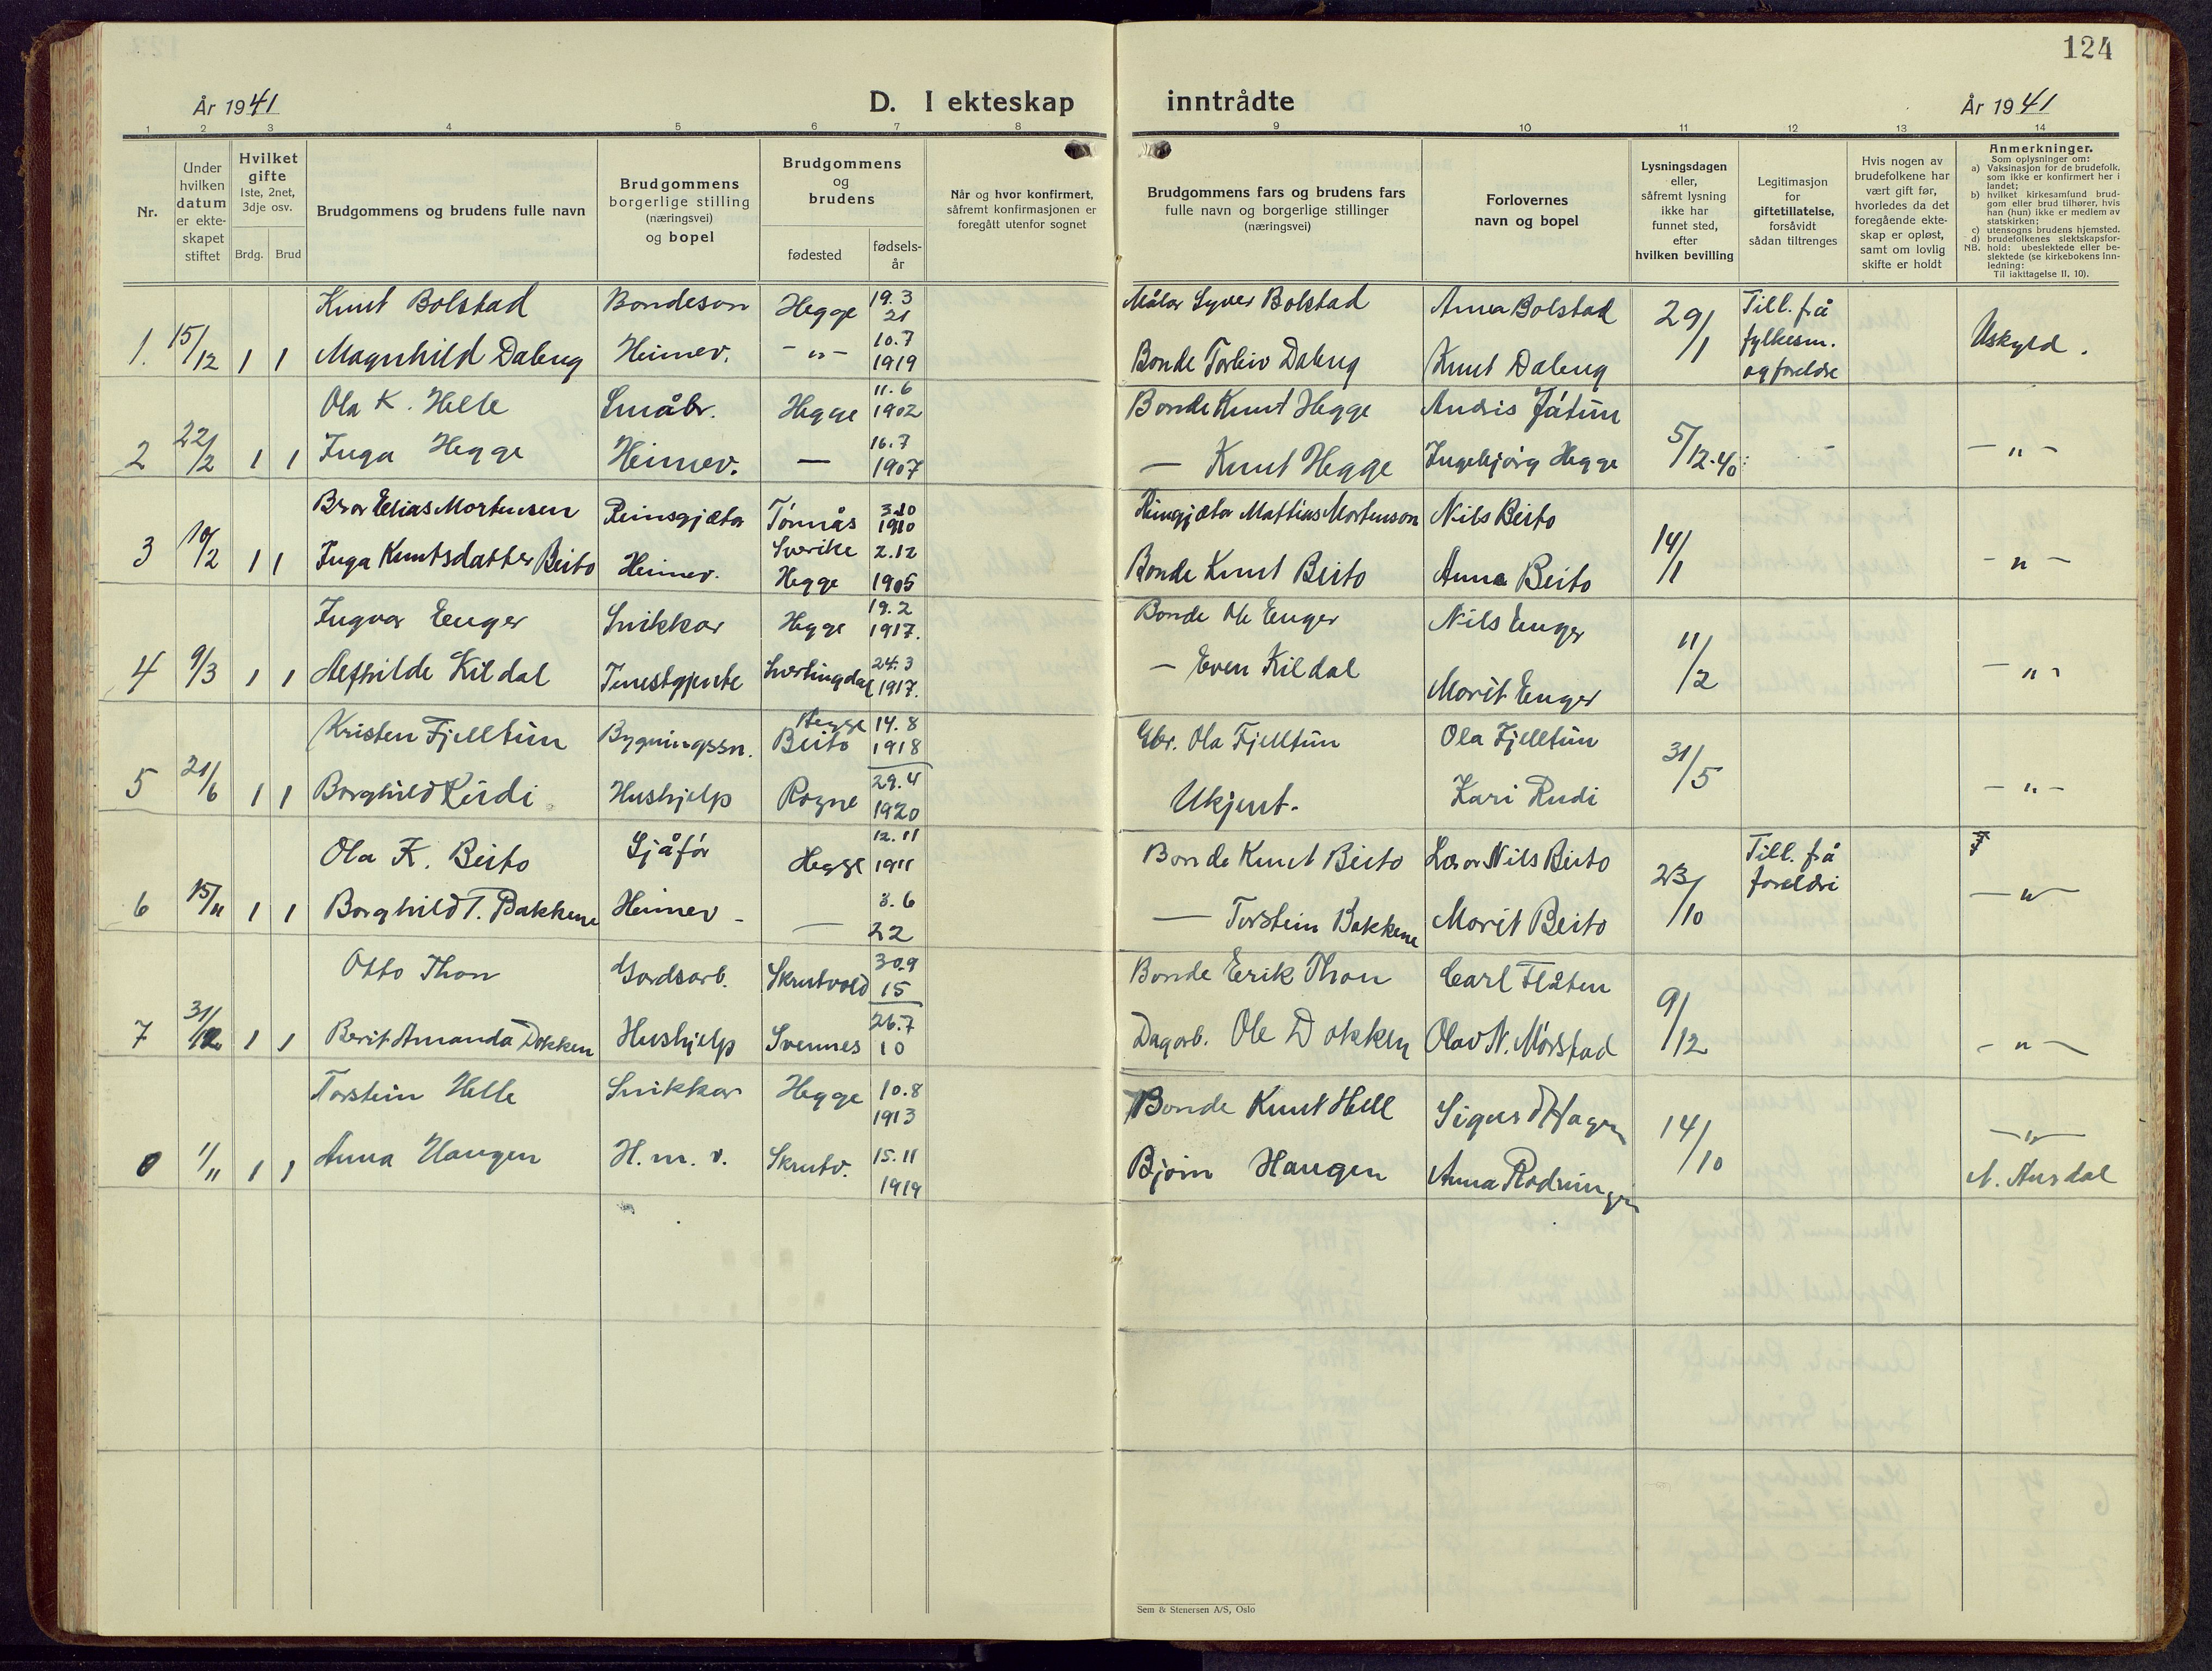 124
År 1941
D. I ekteskap inntrådte
År 1941
1 2 3 4 5 6 7 8 9 10 11 12 13 14
Nr.
Under hvilken datum er ekteskapet stiftet
Hvilket gifte
1ste, 2net, 3dje osv.
Brdg. Brud
Brudgommens og brudens fulle navn
Brudgommens borgerlige stilling (næringsvei) og bopel
Brudgommens og brudens
fødested
fødselsår
Når og hvor konfirmert, såfremt konfirmasjonen er foregått utenfor sognet
Brudgommens fars og brudens fars fulle navn og borgerlige stillinger (næringsvei)
Forlovernes navn og bopel
Lysningsdagen eller, såfremt lysning ikke har funnet sted, efter hvilken bevilling
Legitimasjon for giftetillatelse, forsåvidt sådan tiltrenges
Hvis nogen av brudefolkene har vært gift før, hvorledes da det foregående ekteskap er opløst, samt om lovlig skifte er holdt
Anmerkninger.
Som oplysninger om:
a) Vaksinasjon for de brudefolk, som ikke er konfirmert her i landet;
b) hvilket kirkesamfund brudgom eller brud tilhører, hvis han (hun) ikke er medlem av statskirken;
c) utensogns brudens hjemsted.
d) brudefolkenes slektskapsforhold: ubeslektede eller beslektede (se kirkebokens innledning:
NB. Til iakttagelse II, 10).
Knut Bolstad Bondeson Hegge 19.3 21 Målar Syver Bolstad Anna Bolstad 29/1 Till. frå fylkesm. og foreldre Uskyld.
1. 15/12 1 1 Magnhild Daleng Heimev. -"- 10.7 1919 Bonde Torleiv Daleng Knut Daleng
Ola K. Helle Småbr. Hegge 11.6 1902 Bonde Knut Hegge Andris Jåtun 5/12-40
2 22/2 1 1 Inga Hegge Heimev. — 16.7 1907 — Knut Hegge Ingebjørg Hegge - - " -
Bror Elias Mortensen Reinsgjætar Tørnås Sverike 3.10 1910 Reinsgjætar Mattias Mortenson Nils Beito 14/1
3 10/2 1 1 Inga Knutsdatter Beito Heimev. Hegge 2.12 1905 Bonde Knut Beito Anna Beito - " -
Ingvar Enger Snikkar Hegge 19.2 1917. Bonde Ole Enger Nils Enger 11/2
4 9/3 1 1 Alfhilde Kildal Tenestgjente 24.3 1917. — Even Kildal Marit Enger - " -
Kristen Fjelltun Bygningssn. Hegge Beito 14.8 1918 Gbr. Ola Fjelltun Ola Fjelltun 31/5
5 21/6 1 1 Borghild Rudi Hushjelp Rogne 29.4 1920 Ukjent. Kari Rudi - " -
Ola K. Beito Sjåfør Hegge 12.11 1911 Bonde Knut Beito Lærar Nils Beito 23/10 Till. frå foreldri
6 15/11 1 1 Borghild T. Bakkene Heimev - — 3.6 22 — Torstein Bakkene Marit Beito - " -
Otto Thon Gardsarb. Skrutvold 30.9 15 Bonde Erik Thon Carl Flåten 9/12
7 31/12 1 1 Berit Amanda Dokken Hushjelp Svennes 26.7 10 Dagarb. Ole Dokken Olav N. Mørstad - " -
Torstein Helle Snikkar Hegge 10.8 1913 Bonde Knut Hell Sigurd Hagen 14/10 - " -
8 1/11 1 1 Anna Haugen H.m.v. Skrutv. 15.11 1919 Bjørn Haugen Anna Rødningen N. Aurdal
Sem & Stenersen A/S, Oslo